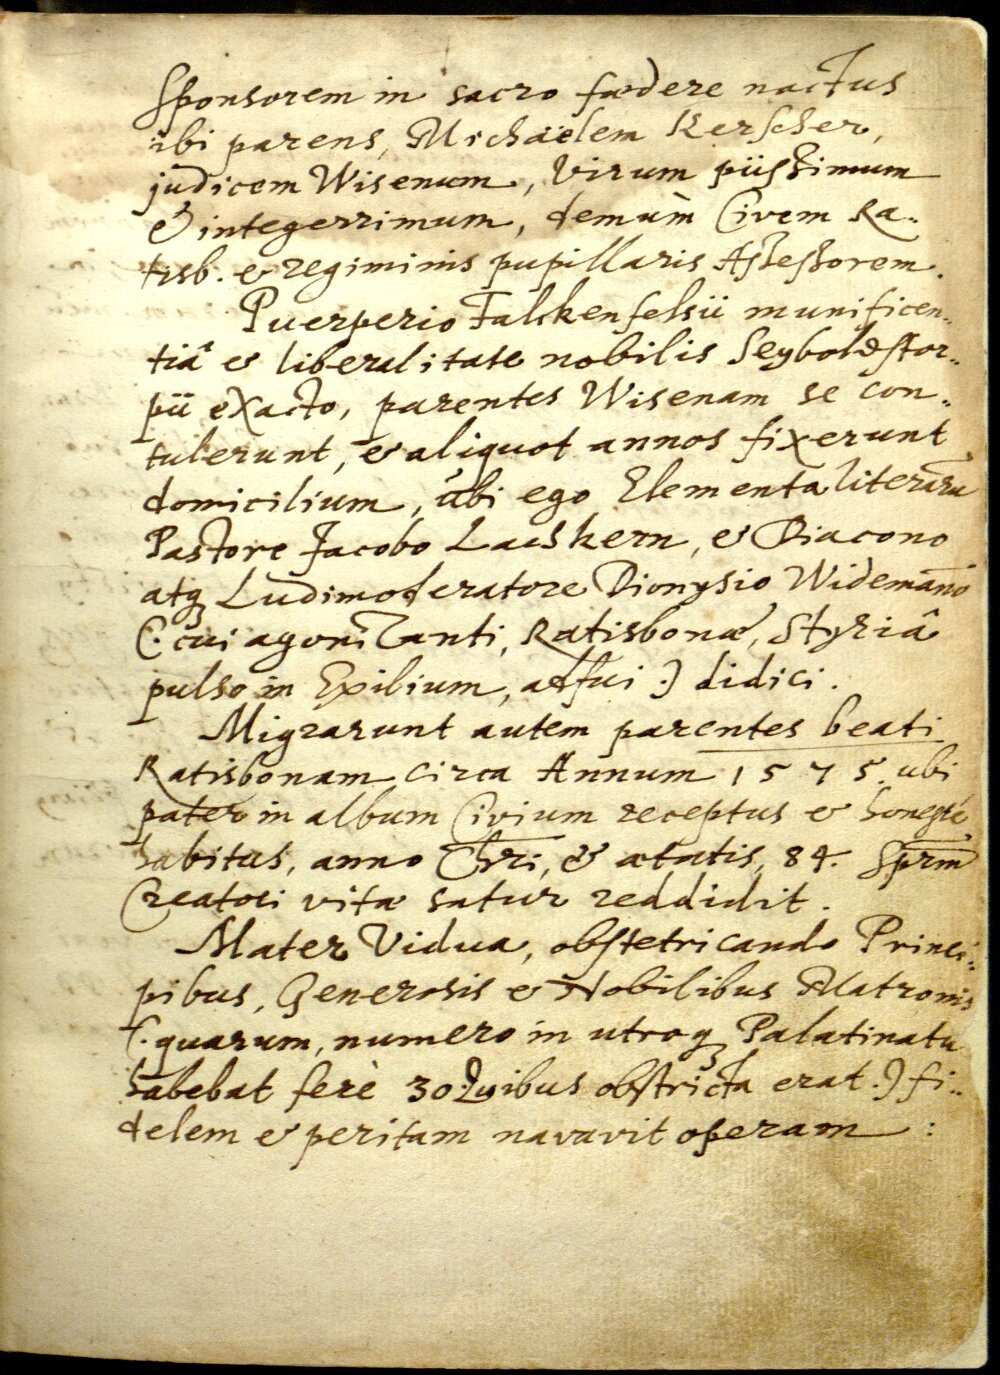 Sponsorem in sacro fœdere nactus
ibi parens, Michaëlem Kerscher,
judicem Wisenum, Virum piissimum
& integerrimum, demùm Civem Ra-
tisb. & regiminis pupillaris Assessorem.
Puerperio Falckenfelsii munificen-
tiâ & liberalitate nobilis Seyboldstor-
pii exacto, parentes Wisenam se con-
tulerunt, & aliquot annos fixerunt
domicilium, ubi ego Elementa literarū
Pastore Jacobo Lackern, & Diacono
atq3 Ludimoderatore Dionysio Widemān̄o
(: cui agonizanti, Ratisbonæ, Styriâ
pulso in Exilium, adfui :) didici.
Migrarunt autem parentes beati
Ratisbonam circa Annum 1575. ubi
pater in album Civium receptus & honestè
habitus, anno Chri, & ætatis, 84. Sprm̄
Creatori vitæ satur reddidit.
Mater Vidua, obstetricando Princi-
pibus, Generosis & Nobilibus Matronis
(: quarum, numero in utroq3 Palatinatu
habebat ferè 30. Quibus obstricta erat :) fi-
delem & peritam navavit operam :